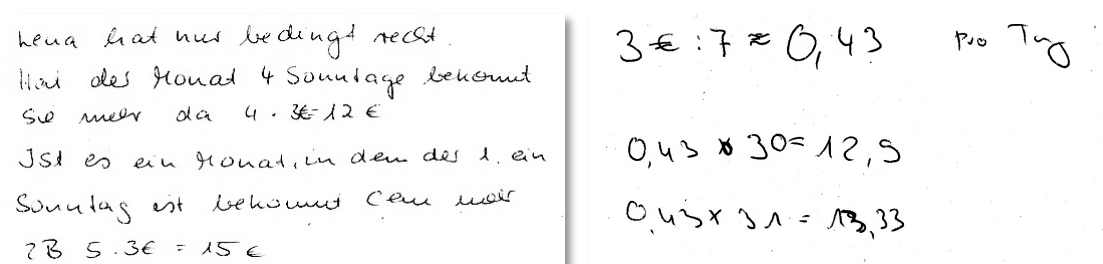 Lena hat nur bedingt recht.
Hat der Monat 4 Sonntage bekommt
Sie mehr da 4 . 3€=12 €
Ist es ein Monat, in dem der 1. ein
Sonntag ist bekommt Cem mehr
zB 5.3€ = 15 €
3 € : 7 ≈ 0,43 pro Tag
0,43 x 30= 12,9
0,43x 31 = 13,33